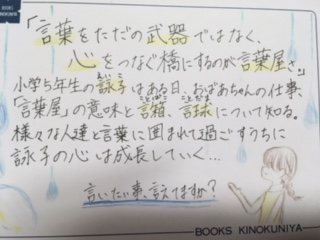 BOOKS KINOKUNIYA
「言葉をただの武器ではなく、
心をつなぐ橋にするのが言葉屋さ。」
小学5年生の詠子はある日、おばあちゃんの仕事、
「言葉屋」の意味と言箱、言珠について知る。
様々な人達と言葉に囲まれて過ごすうちに
詠子の心は成長していく…
言いたい事、言えてますか?
BOOKS KINOKUNIYA